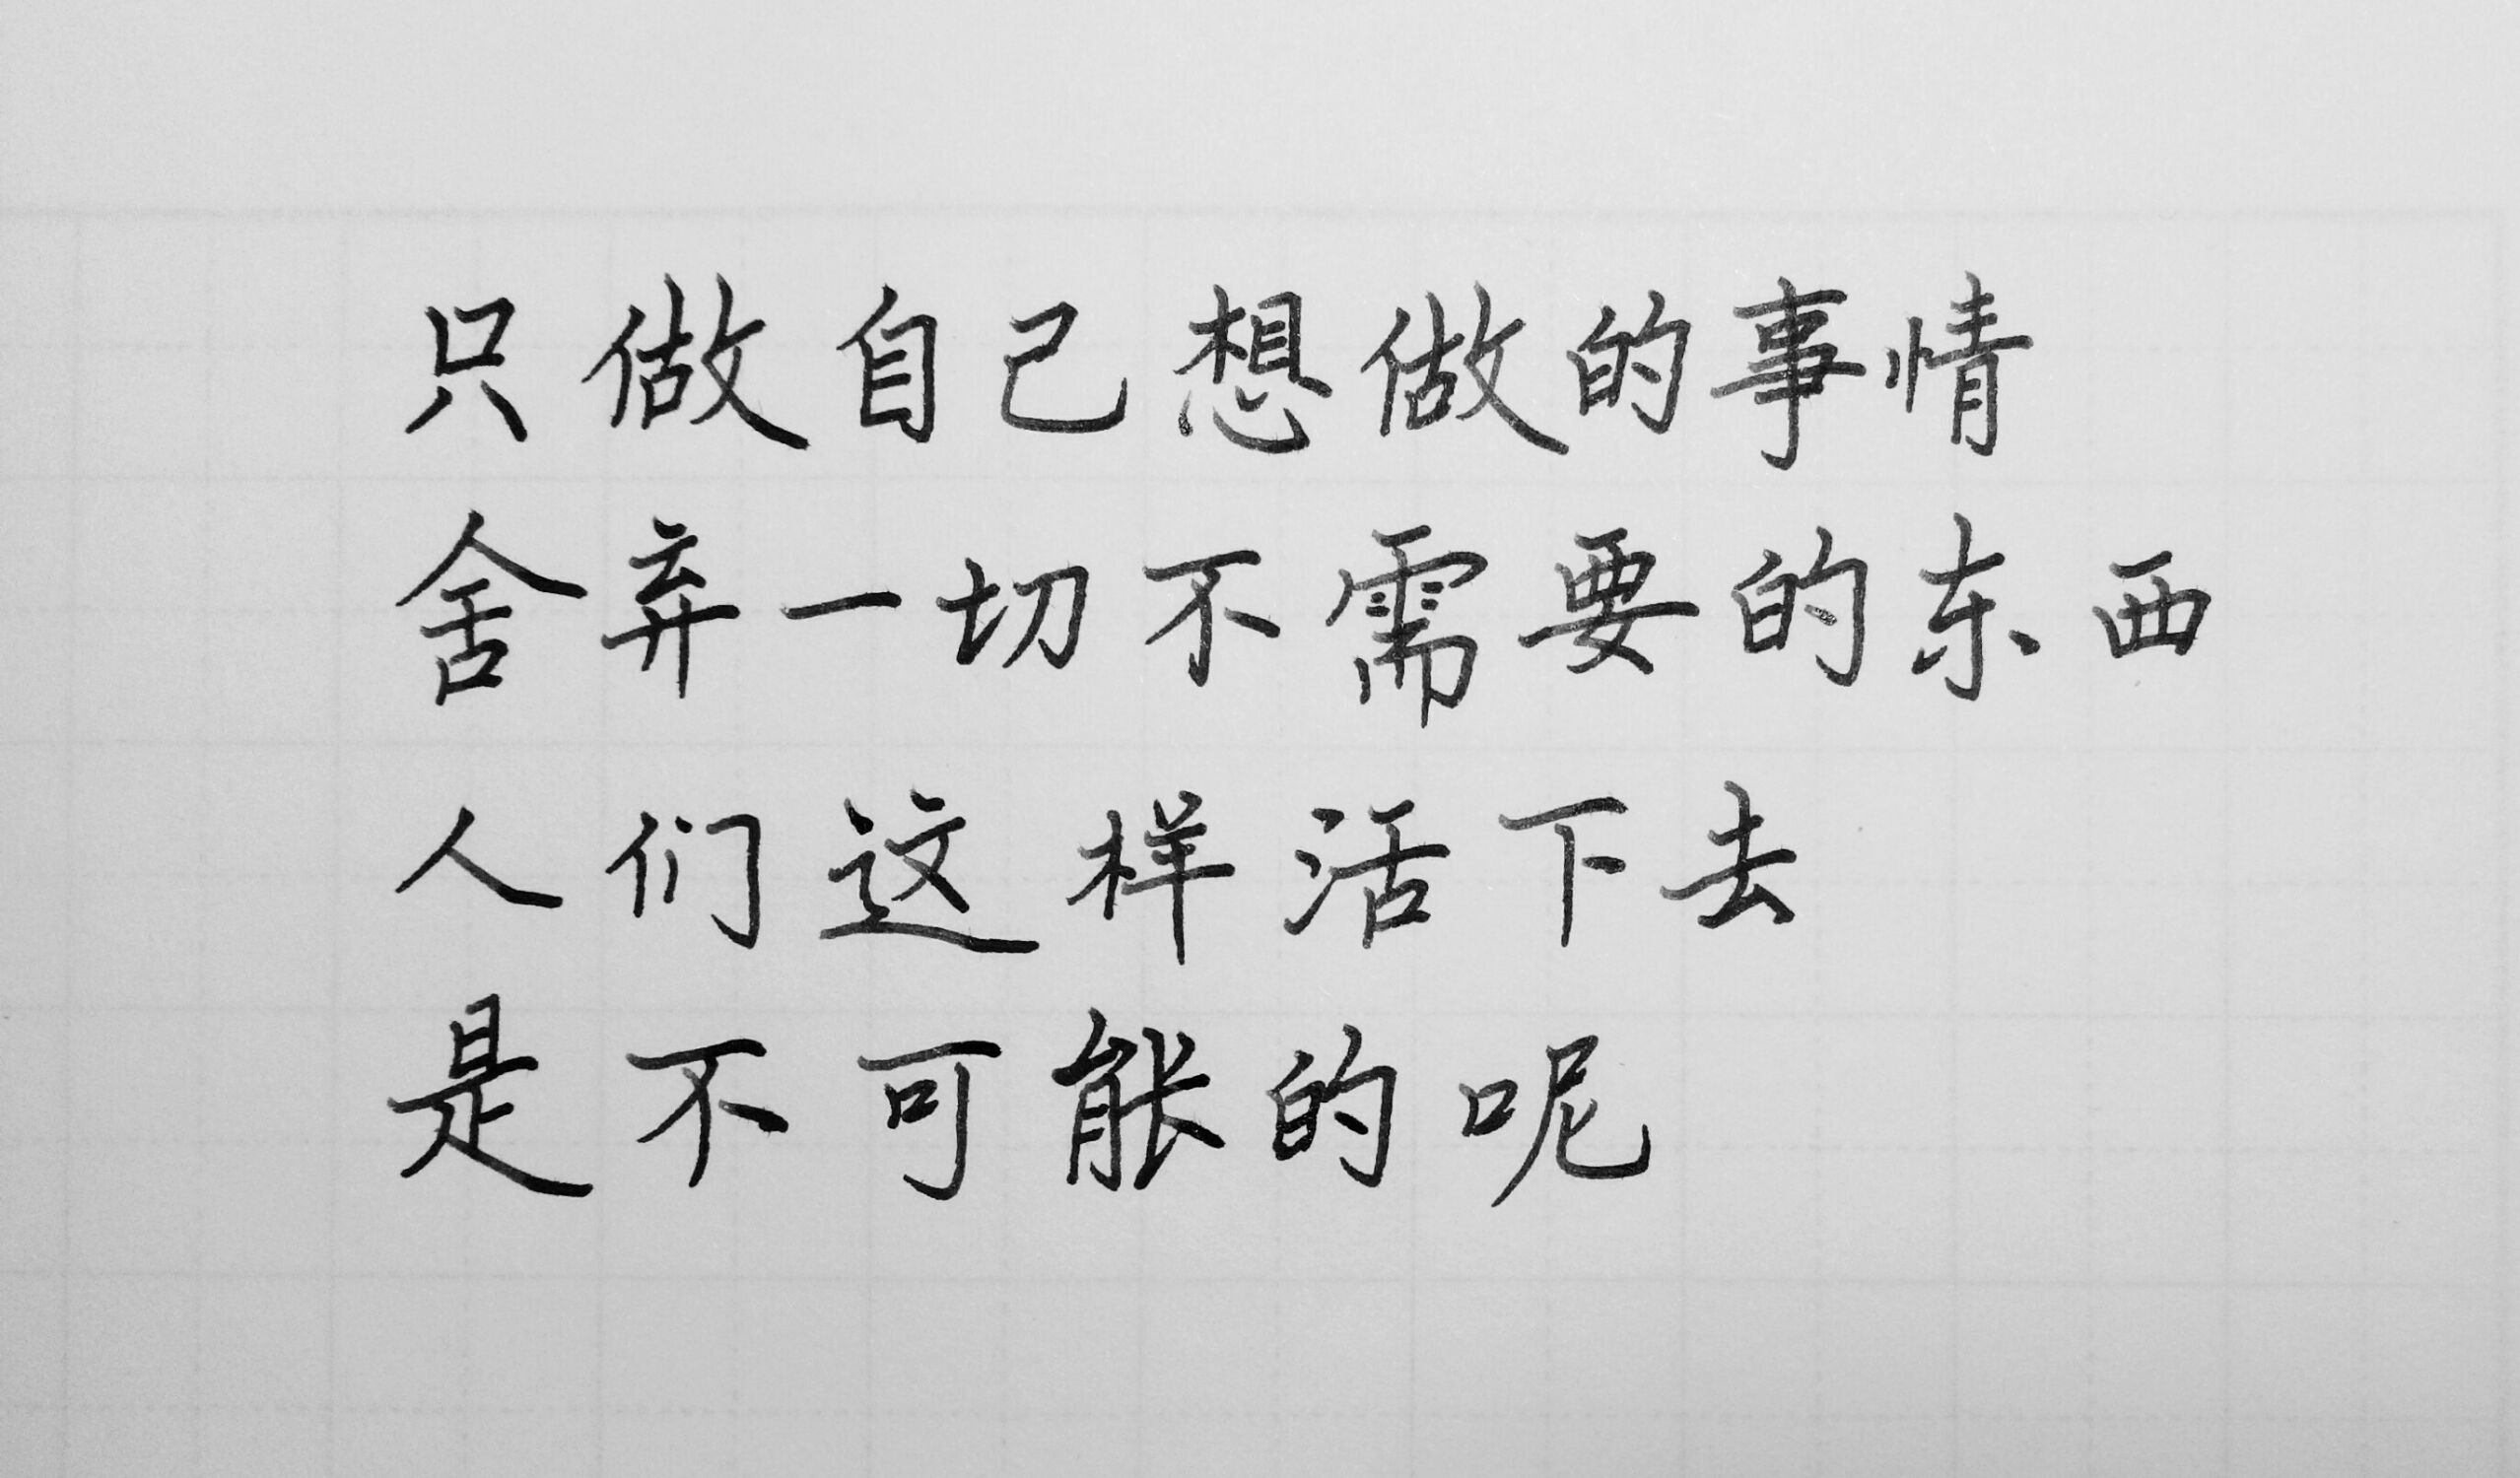 只做自己想做的事情
舍弃一切不需要的东西
人们这样活下去
是不可能的呢